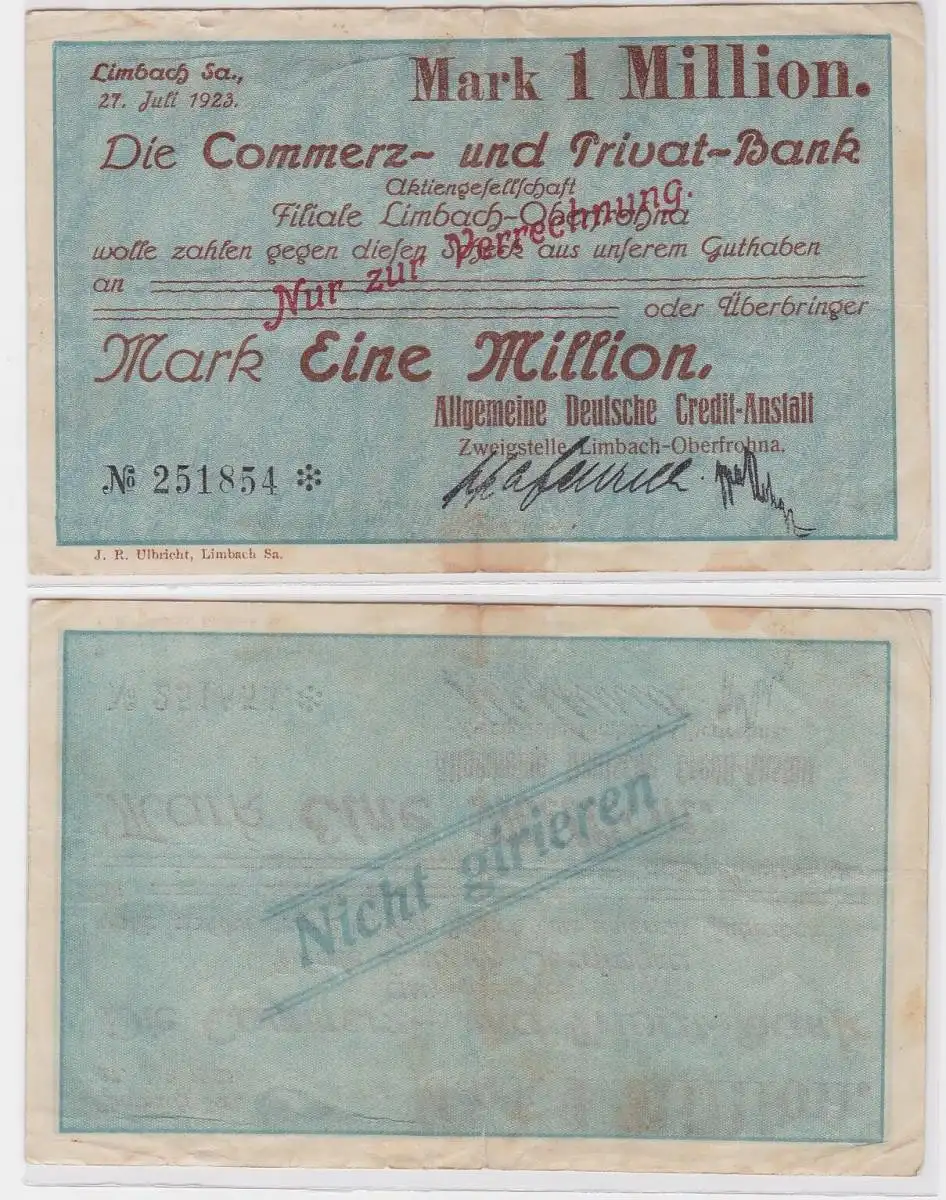 Limbach Sa.,
27. Juli 1923.
Mark 1 Million.
Die Commerz- und Privat-Bank
Aktiengesellschaft
Filiale Limbach-Oberfrohna
wolle zahlen gegen diesen Scheck aus unserem Guthaben
Nur zur Verrechnung.
an
oder Überbringer
Mark Eine Million.
Allgemeine Deutsche Credit-Anstalt
Zweigstelle Limbach-Oberfrohna.
№ 251854 *
J. R. Ulbricht, Limbach Sa.
Nicht girieren